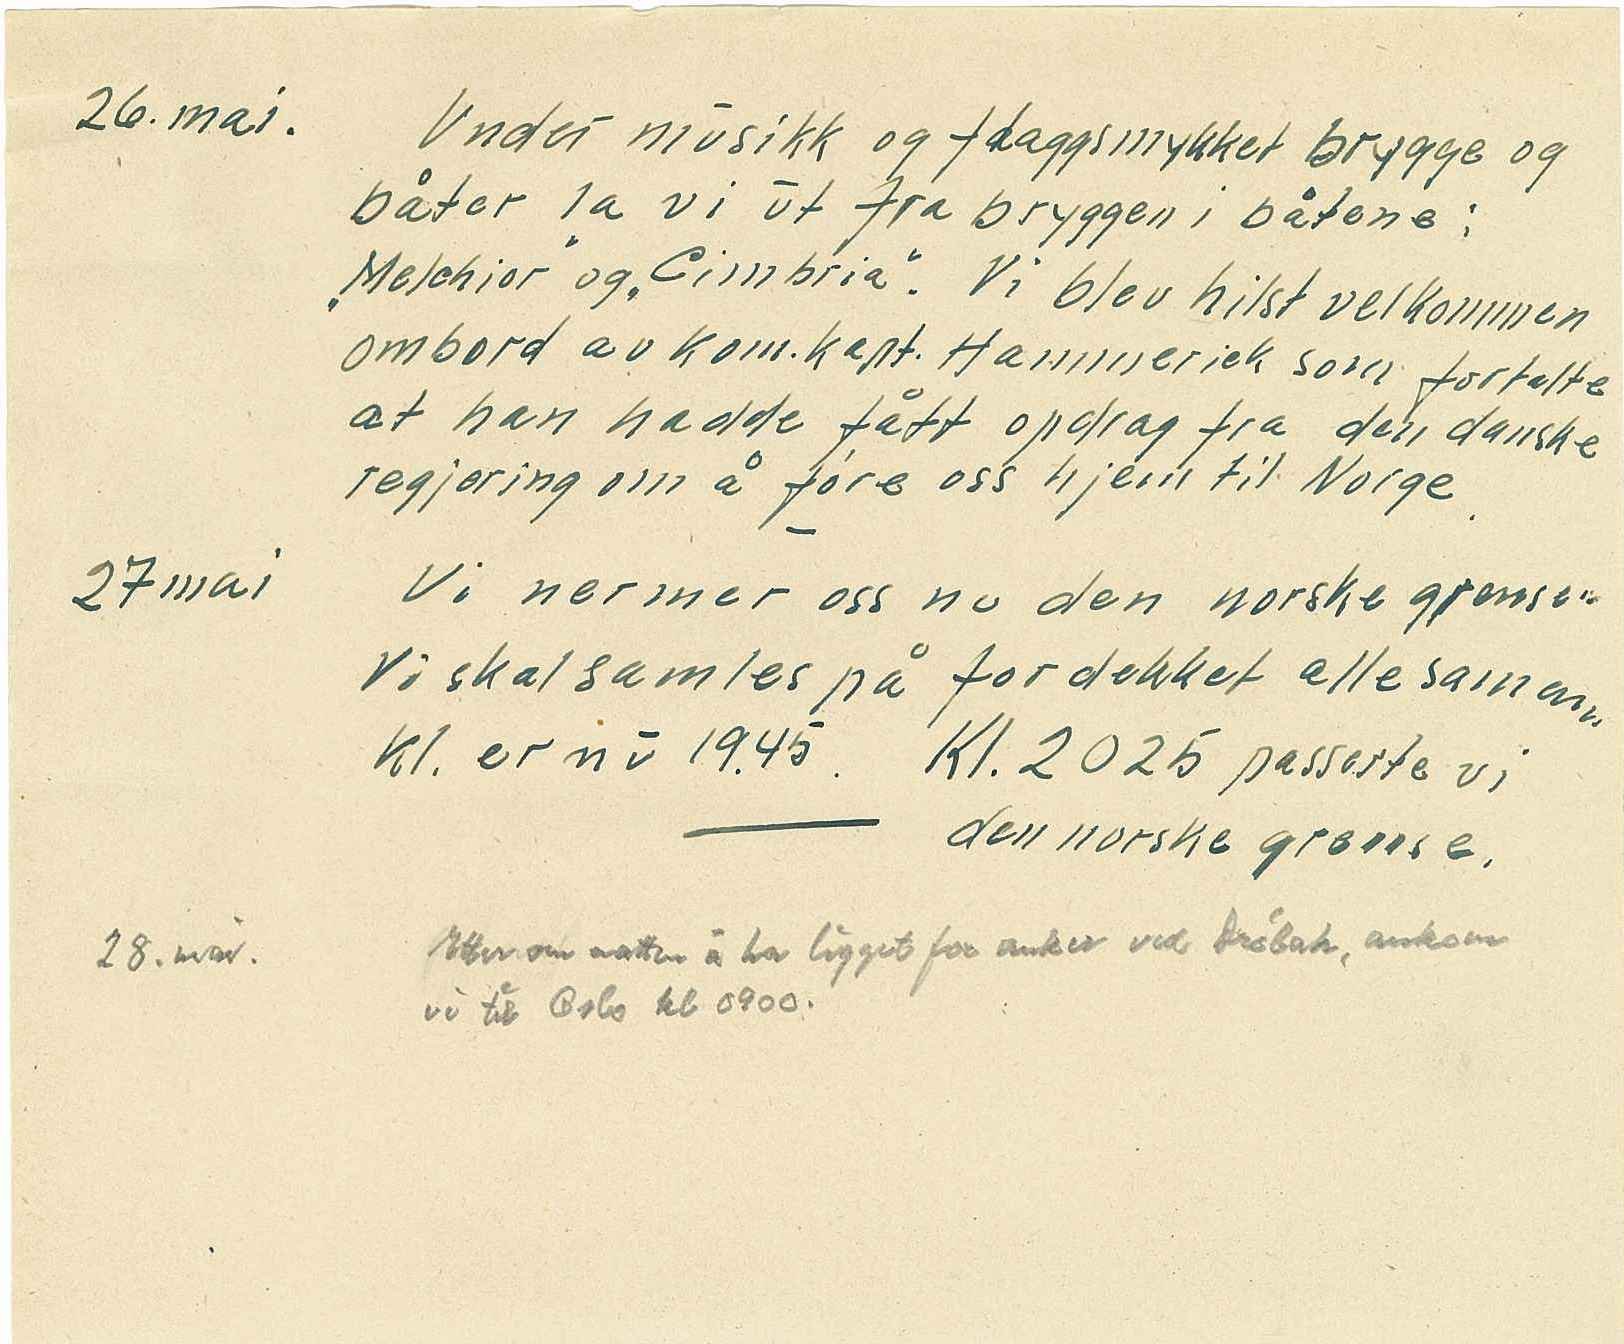 26. mai. Under musikk og flaggsmykket brygge og
båter la vi ut fra bryggen i båtene:
„Melchior" og „Cimbria". Vi blev hilst velkommen
ombord av kom.kapt. Hammerick som fortalte
at han hadde fått opdrag fra den danske
regjering om å føre oss hjem til Norge.
27 mai Vi nermer oss nu den norske grense.
Vi skal samles på fordekket alle samen.
Kl. er nu 19.45. Kl. 2025 passerte vi
den norske grense.
28. mai. Etter om natten å ha ligget for anker ved Drøbak, ankom
vi til Oslo kl 0900.